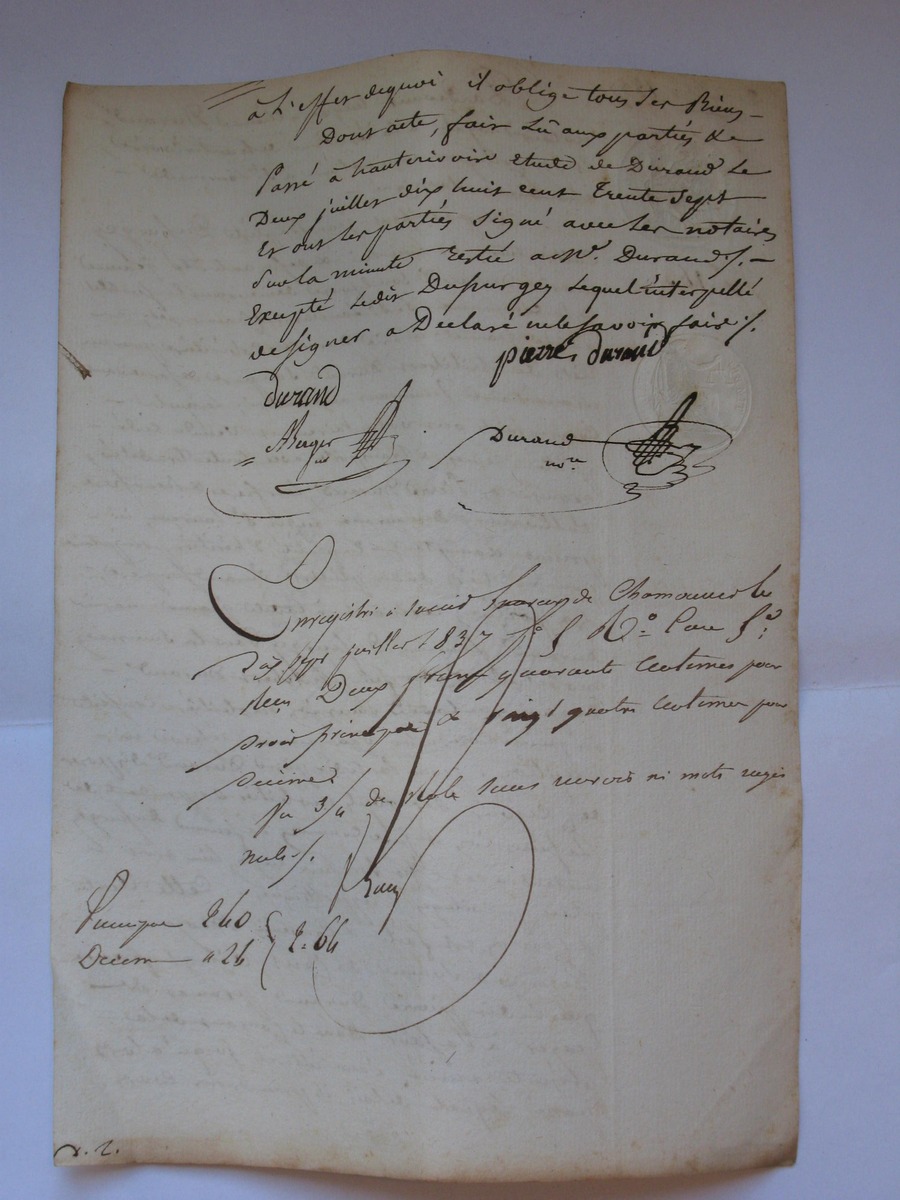 à l'effet dequoi il oblige tous ses Biens —
Dont acte, fait Lû aux parties &
Passé à hauterivoire Etude de Durand Le
Deux juillet dix huit cent Trente Sept
Et ont les partiés Signé avec Les notaires
Sur la minute restée a Me. Durand /. —
Excepté Ledit Dupurgey Lequel interpellé
de Signer a Déclaré ne le savoir faire /.
pierre durand
durand
Berger
Durand
nore
Enregistré à
Dix sept juillet 1837 fo 5 Ro Case
Reçu Deux francs quarante Centimes pour
Droit principal & vingt quatre Centimes pour
Décime
Sans renvois ni mots rayés
nuls /.
Principal 2 40
Decime " 24 } 2 = 64